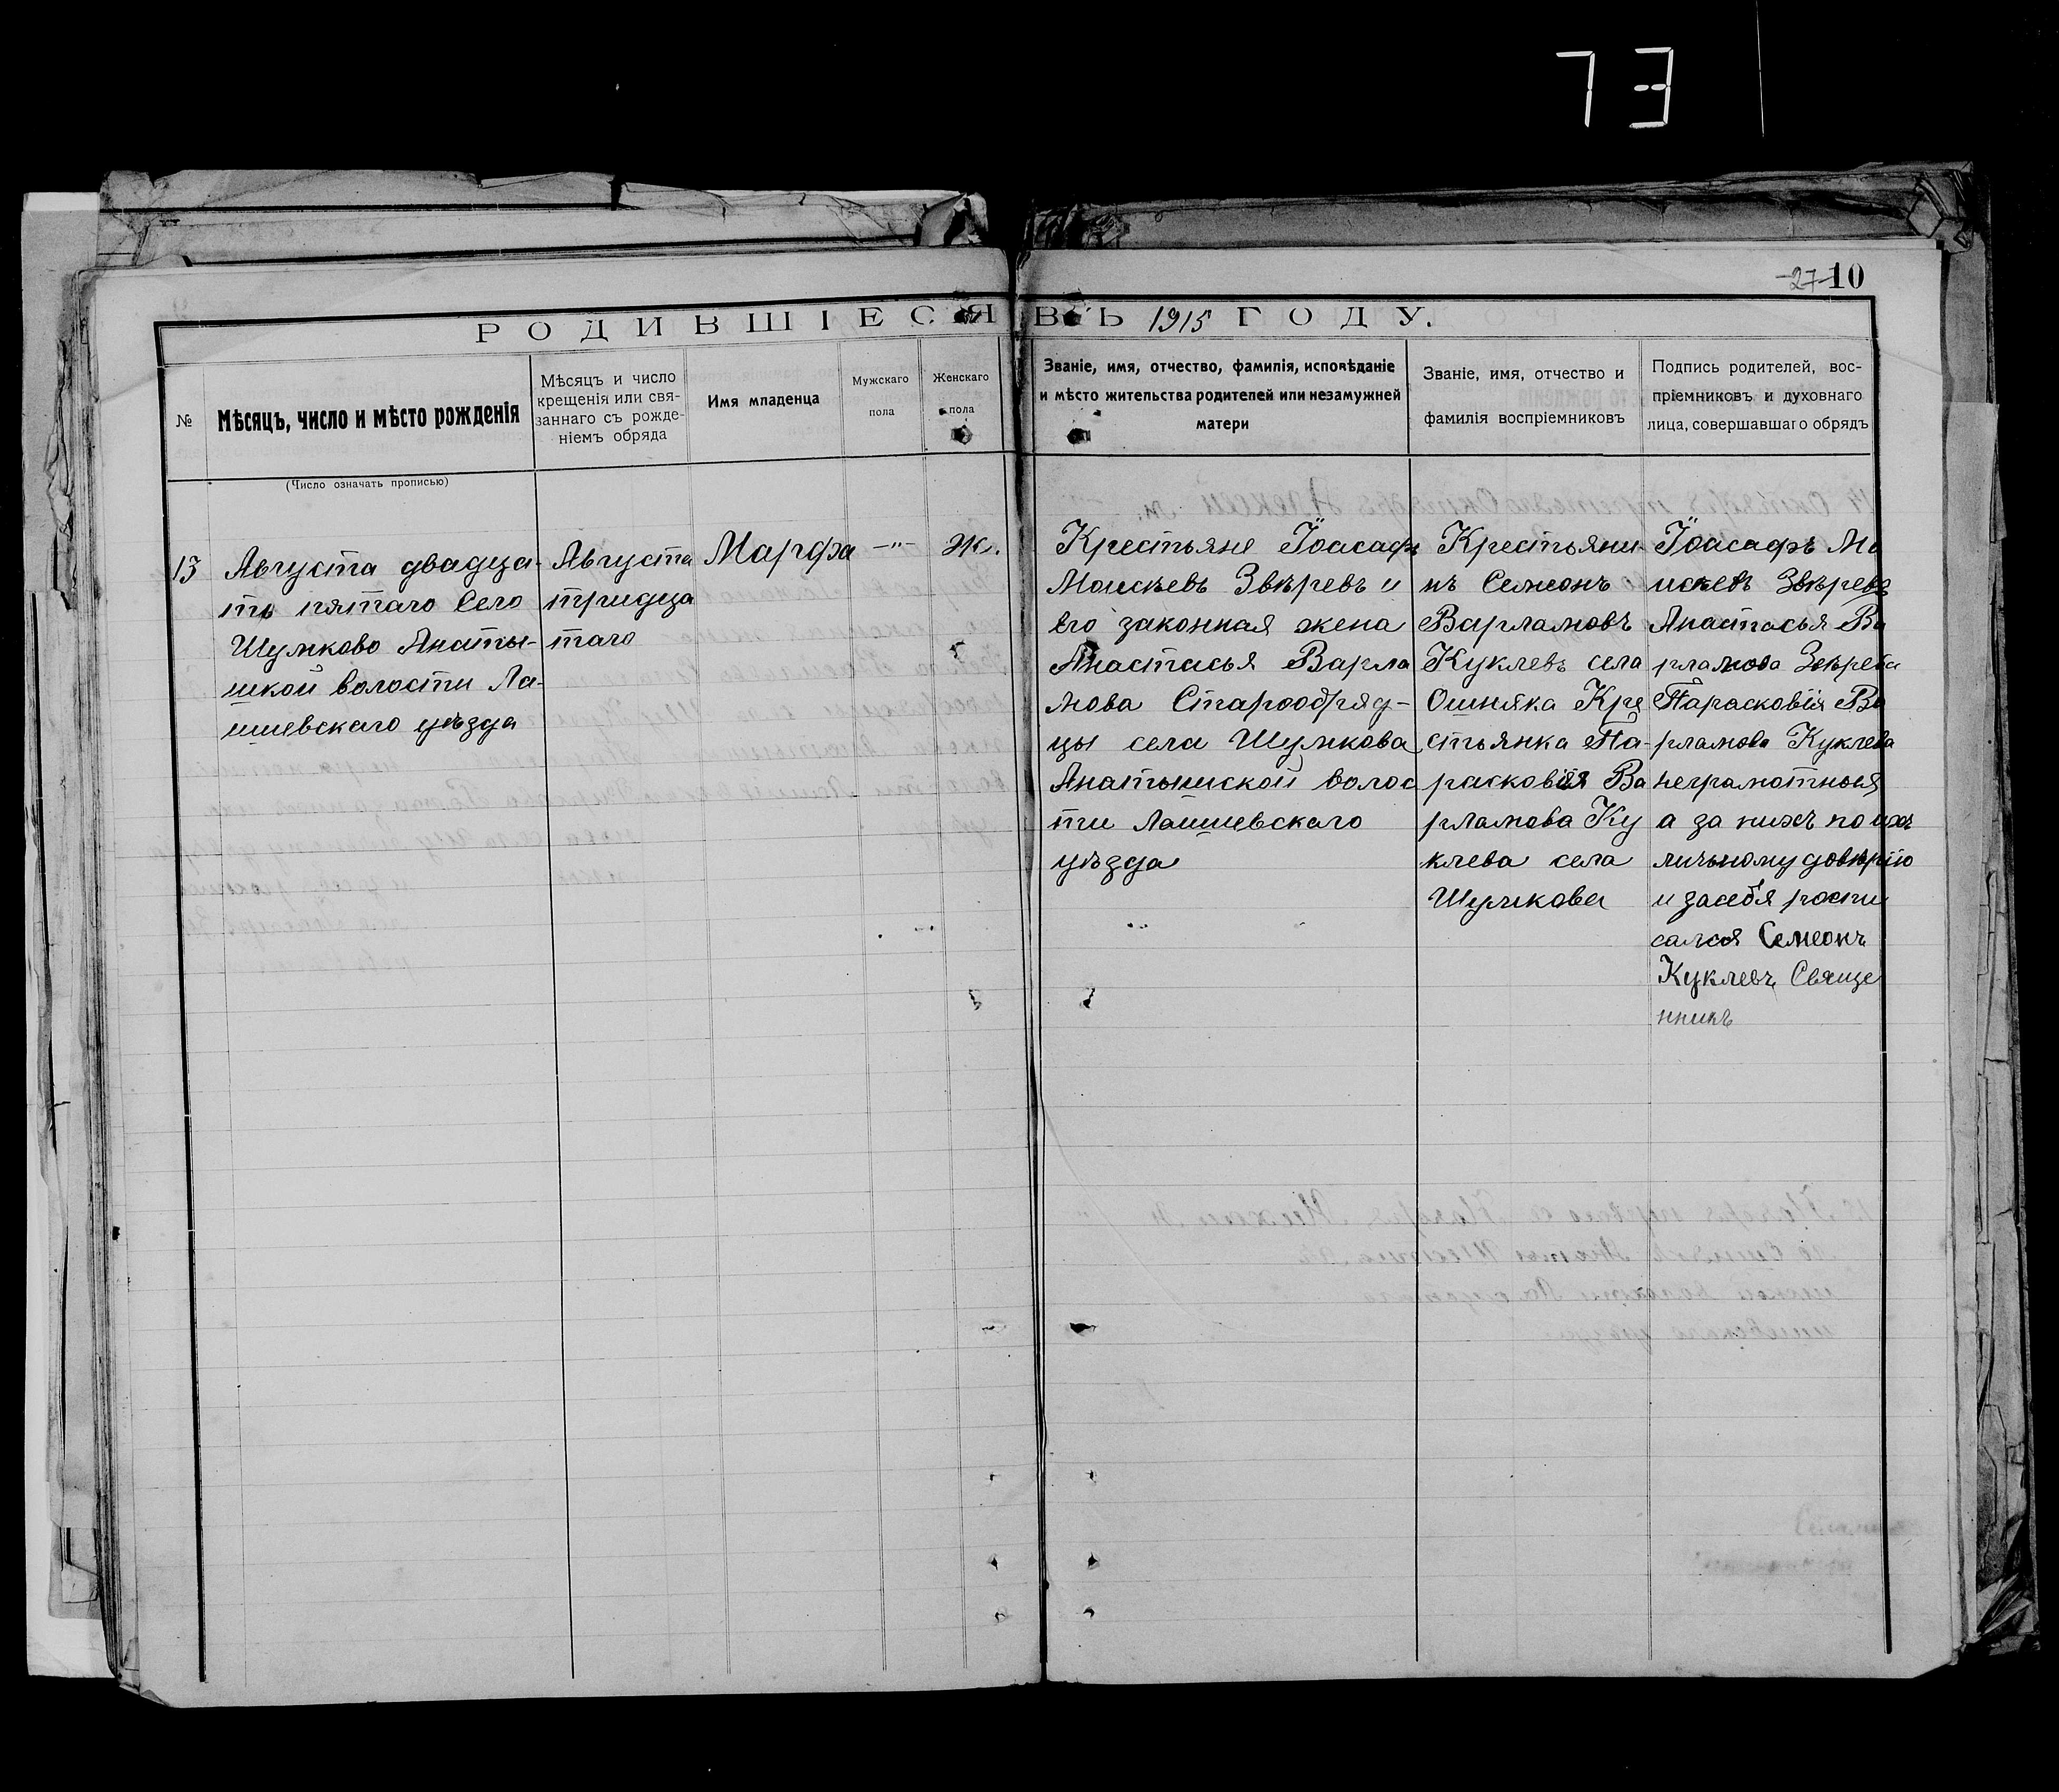 73
27 10
РОДИВШІЕСЯ ВЪ 1915 ГОДУ.
№
Мѣсяцъ, число и мѣсто рожденія
(Число означать прописью)
Мѣсяцъ и число
крещенія или свя-
заннаго съ рожде-
ніемъ обряда
Имя младенца
Мужскаго
пола
Женскаго
пола
Званіе, имя, отчество, фамилія, исповѣданіе
и мѣсто жительства родителей или незамужней
матери
Званіе, имя, отчество и
фамилія воспріемниковъ
Подпись родителей, вос-
пріемниковъ и духовнаго
лица, совершавшаго обрядъ
13
Августа двадца-
ть пятаго Село
Шумково Анаты-
шкой волости Ла-
ишевскаго уѣзда
Августа
тридца
таго
Марфа
-"-
Ж.
Крестьяне Іоасафъ
Моисѣевъ Звѣревъ и
его законная жена
Анастасья Варла
мова Старообряд-
цы села Шумкова
Анатышской волос
ти Лаишевскаго
уѣзда
Крестьяни-
нъ Семеонъ
Варламовъ
Куклевъ села
Ошняка Кре
стьянка Па-
расковія Ва
рламова Ку
клева села
Шумкова
Іоасафъ Мо
исѣевъ Звѣревъ
Анастасья Ва
рламова Звѣрева
Парасковія Ва
рламова Куклева
неграмотныя
а за нихъ по ихъ
личьному довѣрію
и засебя роспи
салса Семеонъ
Куклевъ Свяще
нникъ